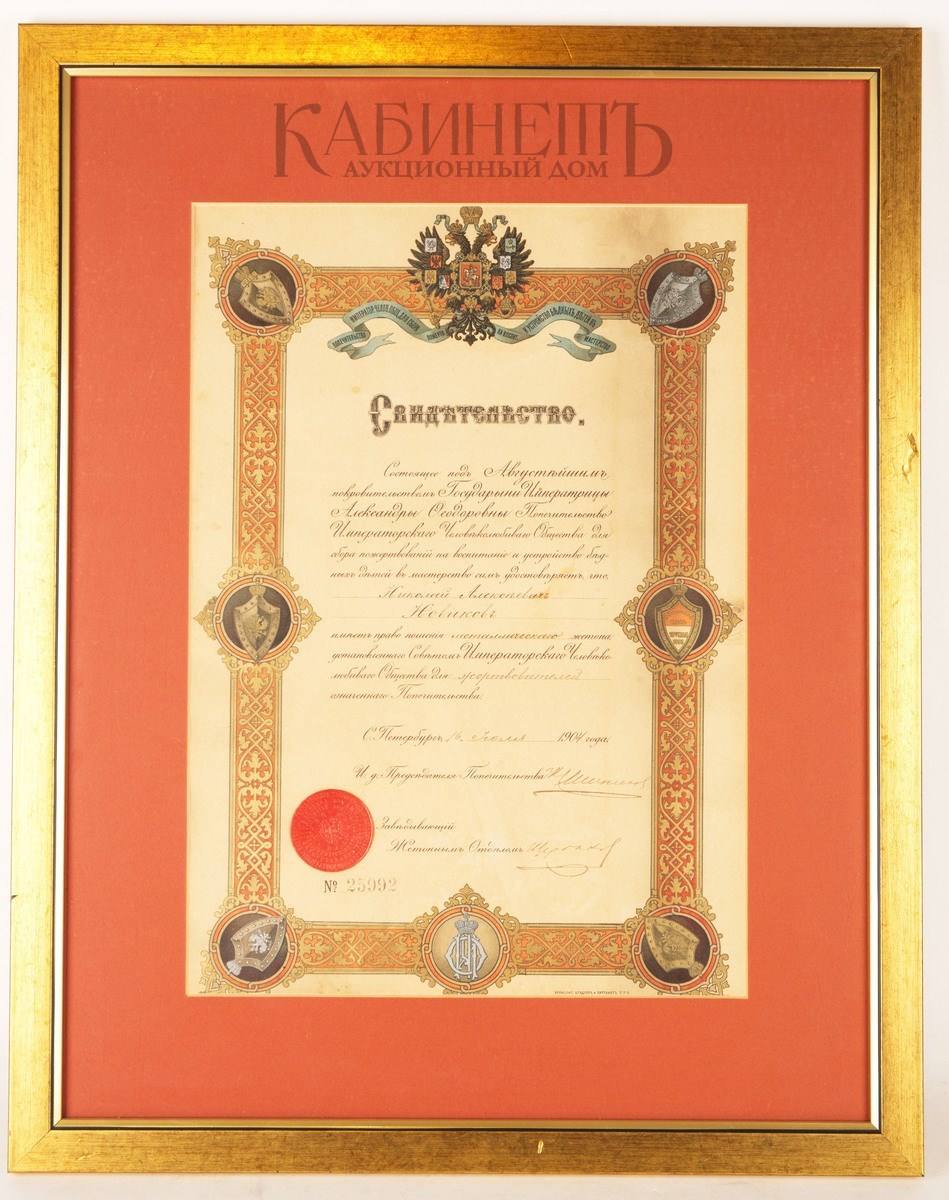 КАБИНЕТЪ
АУКЦИОННЫЙ ДОМ
Свидѣтельство.
Состоящее подъ Августѣйшимъ
покровительствомъ Государыни Императрицы
Александры Ѳеодоровны Попечительство
Императорскаго Человѣколюбиваго Общества для
сбора пожертвованій на воспитаніе и устройство бѣд-
ныхъ дѣтей въ мастерство симъ удостовѣряетъ, что
Николай Алексѣевичъ
Новиковъ
имѣетъ право ношенія металлическаго жетона,
установленнаго Совѣтомъ Императорскаго Человѣко-
любиваго Общества для жертвователей
означеннаго Попечительства.
С. Петербургъ, 16 Іюля 1904 года.
И. д. Предсѣдателя Попечительства
Завѣдывающій
Жетоннымъ Отдѣломъ
№ 25992